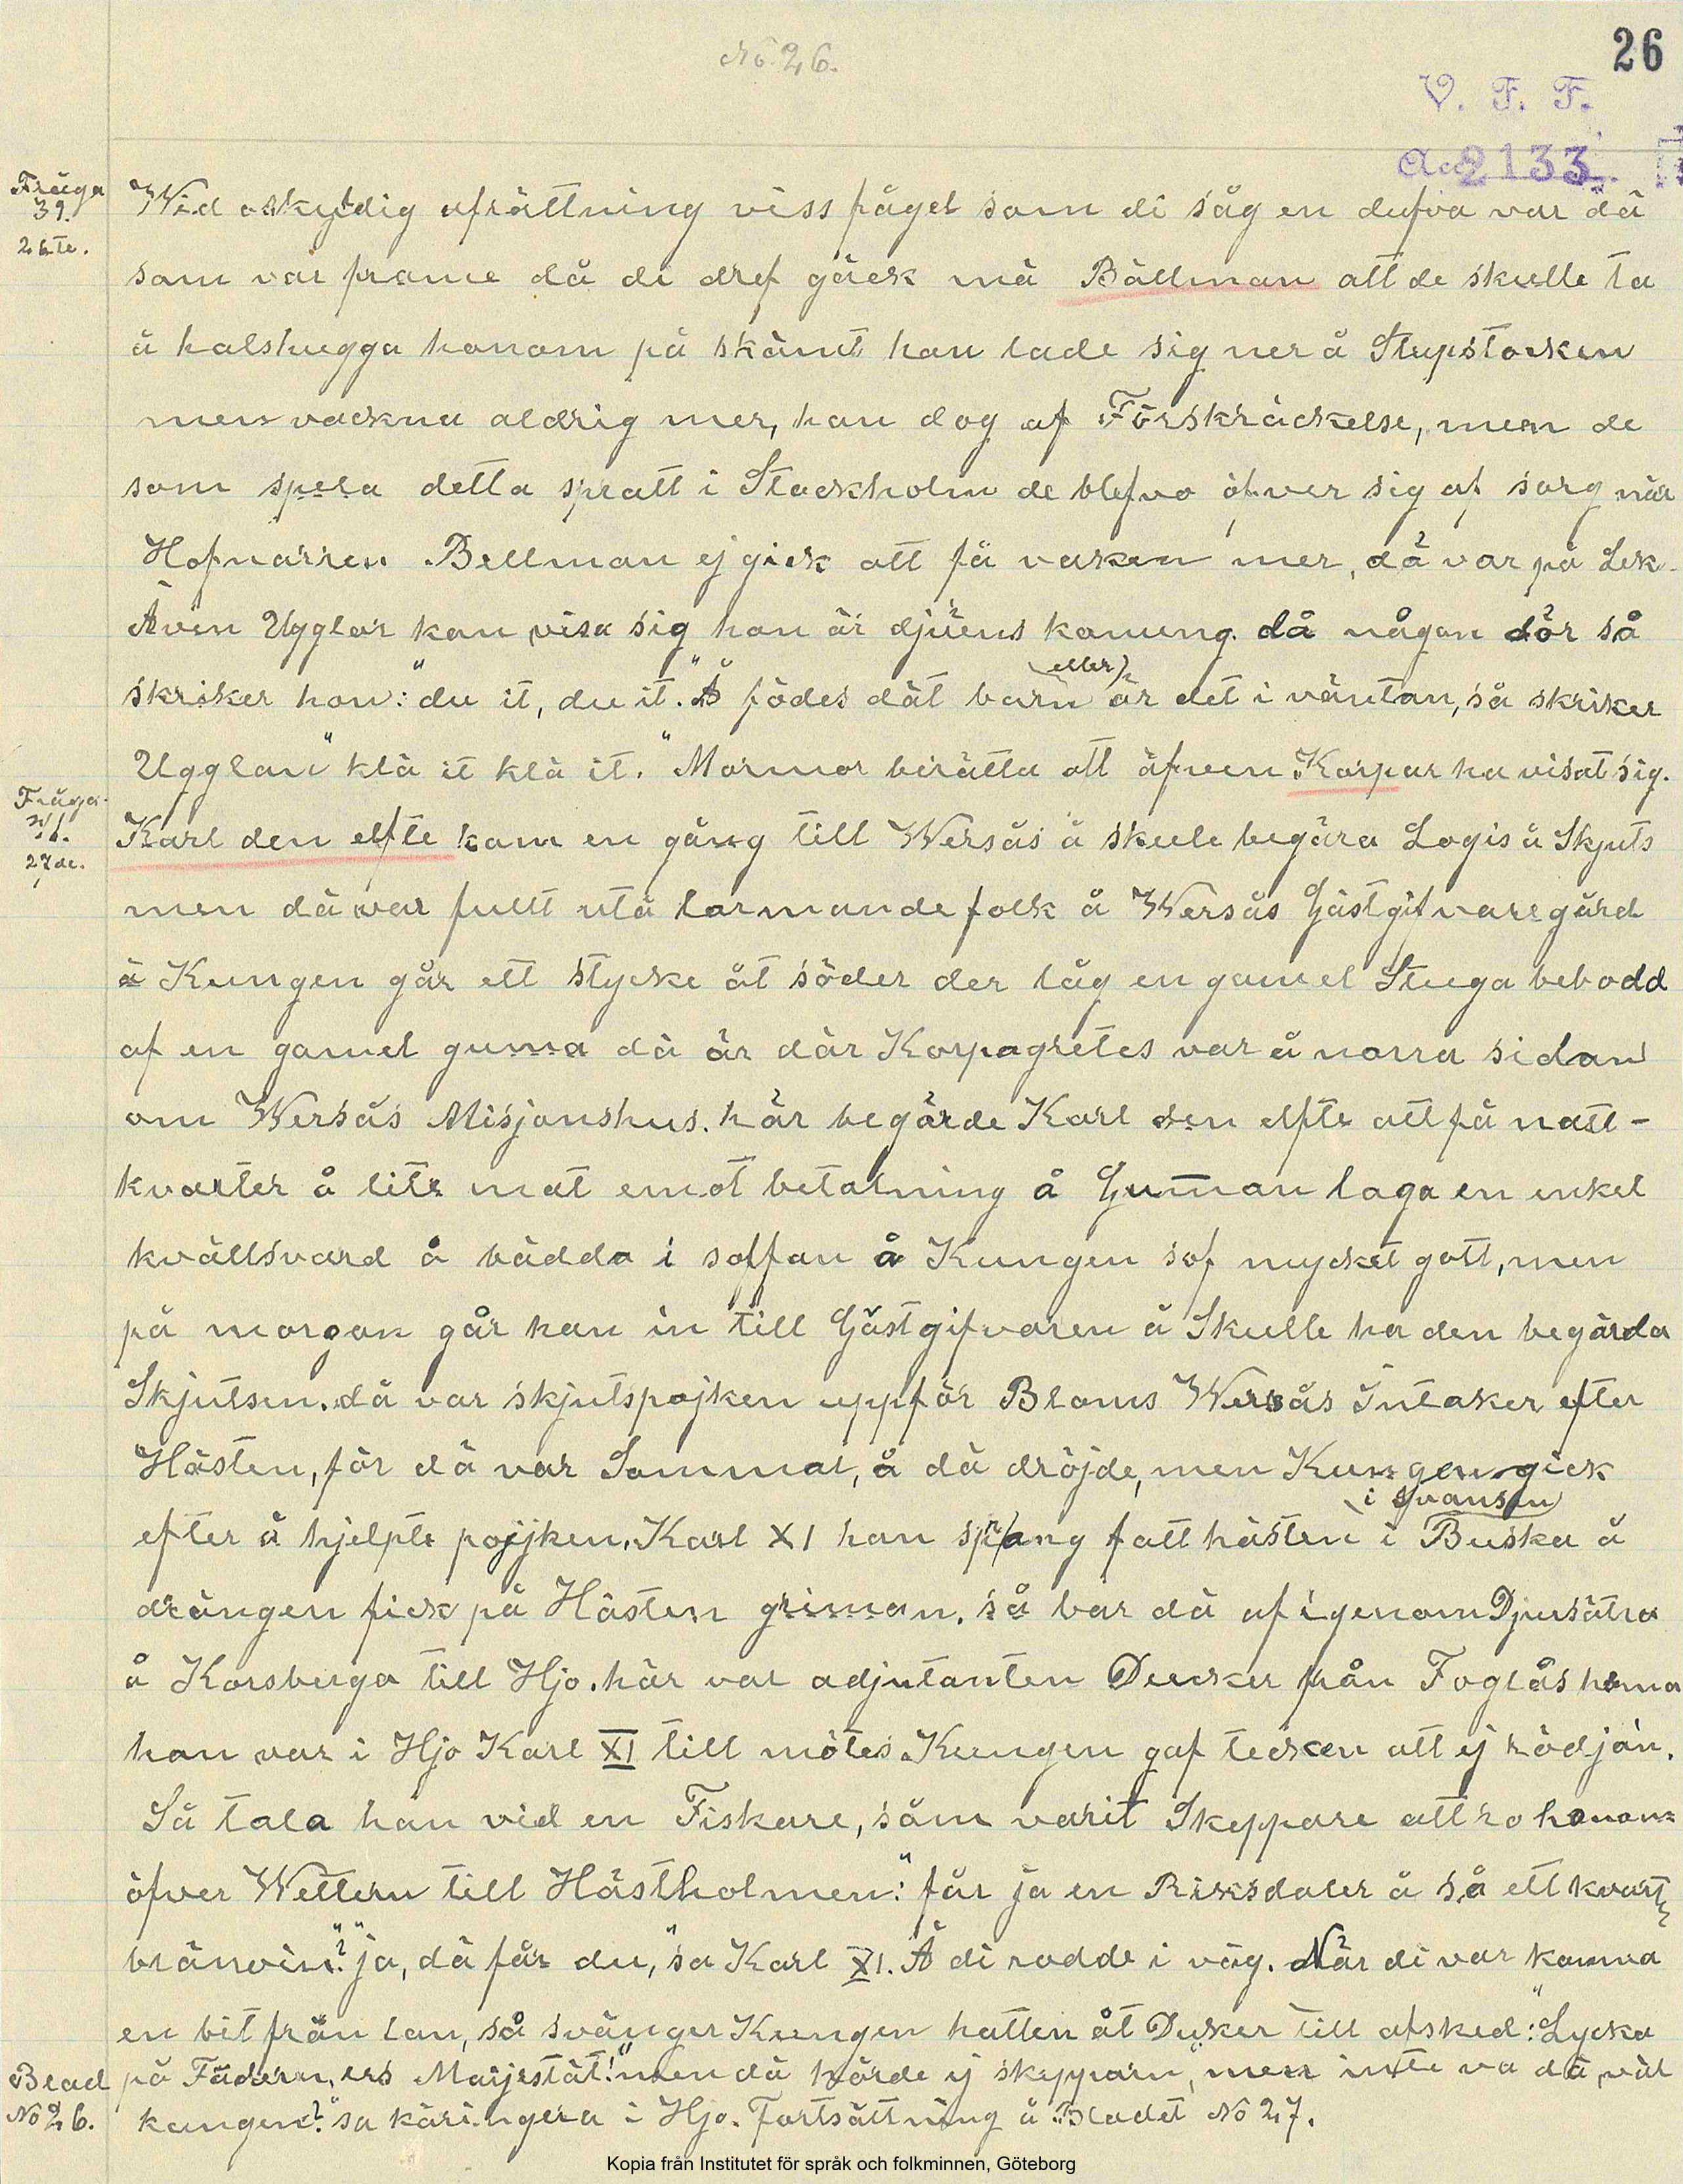 No 26.
26
V. F. F.
Acc 2133
Fråga
39.
26te.
Wid oskyldig afrättning viss fågel som di såg en dufva var dä
som var framme då di dref gäck mä Bällman att de skulle ta
å halshugga honom på skämt han lade sig ner å Stupstocken
men vackna aldrig mer, han dog af Förskräckelse, men de
som spela detta spratt i Stockholm de blefvo öfver sig af sorg när
Hofnarren Bellman ej gick att få vaken mer, dä var på Lek.
Även Ugglor kan visa sig han är djurens konung. då någon dör så
skriker hon: "du it, du it." Å födes dät barn (eller) är det i väntan, så skriker
Ugglan "klä it klä it." Mormor berätta att äfven Korpar ha visat sig.
Fråga
27de.
Karl den elfte kom en gång till Wersås å skule begära Logis å Skjuts
men dä var fullt utå larmande folk å Wersås Gästgifvaregård
å Kungen går ett stycke åt söder der låg en gamel Stuga bebodd
af en gamel guma dä är där Korpagretes var å norra sidan
om Wersås Misjonshus. här begärde Karl den elfte att få natt-
kvarter å lite mat emot betalning å Guman laga en enkel
kvällsvard å bädda i soffan å Kungen sof mycket gott, men
på morgon går han in till Gästgifvaren å Skulle ha den begärda
Skjutsen. dä var skjutspojken uppför Bloms Wersås Intaker efter
Hästen, för dä var Sommar, å dä dröjde, men Kungen gick
efter å hjelpte pojjken. Karl XI han sprang fatt hästen i Buska å
(i Svansen)
drängen fick på Hästen griman. så bar dä af igenom Djursätra
å Korsberga till Hjo. här var adjutanten Ducker från Foglås hema
han var i Hjo Karl XI till mötes. Kungen gaf tecken att ej rödjän.
Så tala han vid en Fiskare, som varit Skeppare att ro honom
öfver Wettern till Hästholmen: "får ja en Riksdaler å så ett kvart
bränvin?" "ja, dä får du," sa Karl XI. Å di rodde i väg. När di var komna
en bit från lan, så svänger Kungen hatten åt Duker till afsked: "Lycka
på Fädern, ers Maijestät!" men dä hörde ej skepparn, "men inte va dä väl
kungen?" sa käringera i Hjo. Fortsättning å Bladet No 27.
Blad
No 26.
Kopia från Institutet för språk och folkminnen, Göteborg